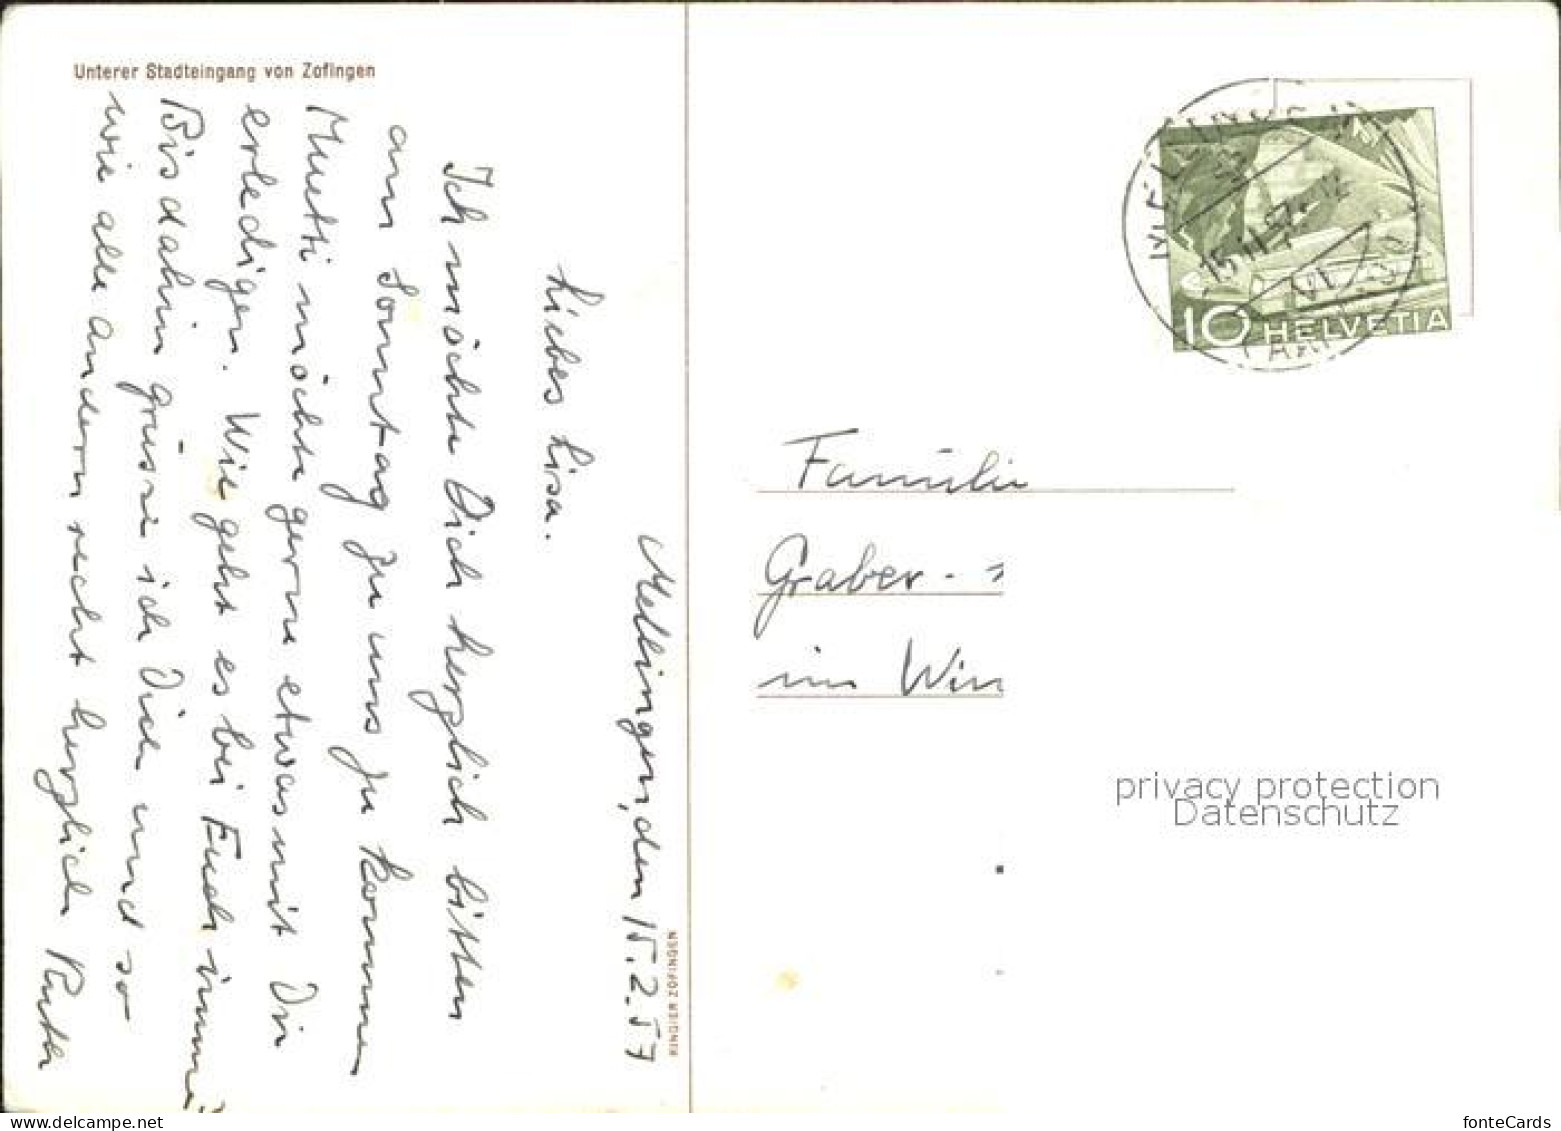 Unterer Stadteingang von Zofingen
Mellingen, den 15.2.57
Liebes Lisa.
Ich möchte Dich herzlich bitten
am Sonntag zu uns zu kommen
Muetti möchte gerne etwas mit Dir
erledigen. Wie geht es bei Euch immer?
Bis dahin grüsse ich Dich und so
wie alle andern recht herzlich Ruth
RINGIER ZOFINGEN
MELLINGEN
15.II.57.-12
(AARGAU)
10 HELVETIA
Familie
Graber-
im Win
privacy protection
Datenschutz
www.delcampe.net
fonteCards